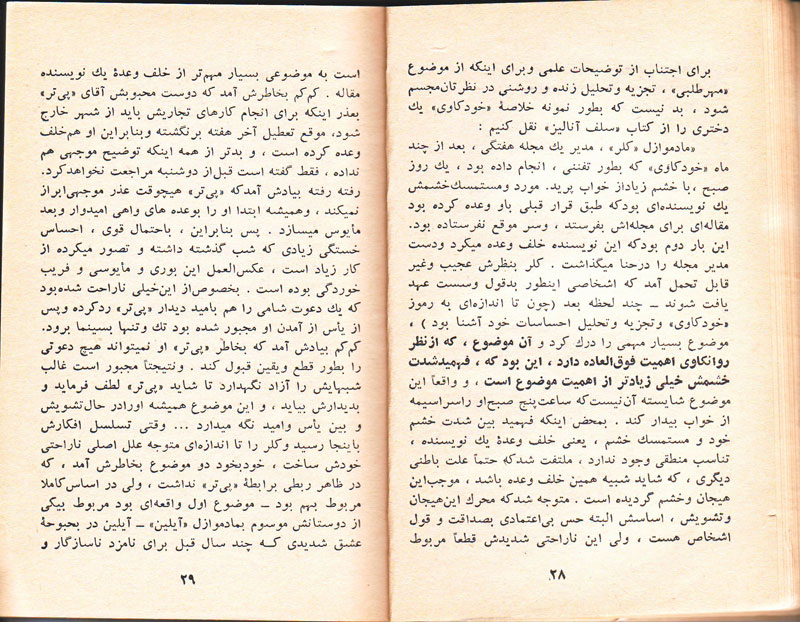 برای اجتناب از توضیحات علمی وبرای اینکه از موضوع
«مهرطلبی» ، تجزیه وتحلیل زنده و روشنی در نظرتان‌مجسم
شود ، بد نیست که بطور نمونه خلاصهٔ «خودکاوی» یك
دختری را از کتاب «سلف آنالیز» نقل کنیم :
«مادموازل «کلر» ، مدیر یك مجله هفتگی ، بعد از چند
ماه «خودکاوی» که بطور تفننی ، انجام داده بود ، یك روز
صبح ،با خشم زیاداز خواب پرید. مورد ومستمسك‌خشمش
یك نویسنده‌ای بودکه طبق قرار قبلی باو وعده کرده بود
مقاله‌ای برای مجله‌اش بفرستد ، وسر موقع نفرستاده بود.
این بار دوم بودکه این نویسنده خلف وعده میکرد ودست
مدیر مجله را درحنا میگذاشت . کلر بنظرش عجیب وغیر
قابل تحمل آمد که اشخاصی اینطور بدقول وسست عهد
یافت شوند ــ چند لحظه بعد (چون تا اندازه‌ای به رموز
«خودکاوی» وتجزیه وتحلیل احساسات خود آشنا بود ) ،
موضوع بسیار مهمی را درك کرد و آن موضوع ، که ازنظر
روانکاوی اهمیت فوق‌العاده دارد ، این بود که ، فهمیدشدت
خشمش خیلی زیادتر از اهمیت موضوع است ، و واقعاً این
موضوع شایسته آن‌نیست‌که ساعت‌پنج صبح‌او راسراسیمه
از خواب بیدار کند . بمحض اینکه فهمید بین شدت خشم
خود و مستمسك خشم ، یعنی خلف وعدهٔ یك نویسنده ،
تناسب منطقی وجود ندارد ، ملتفت شدکه حتماً علت باطنی
دیگری ، که شاید شبیه همین خلف وعده باشد ، موجب‌این
هیجان وخشم گردیده است . متوجه شدکه محرك این‌هیجان
وتشویش ، اساسش البته حس بی‌اعتمادی بصداقت و قول
اشخاص هست ، ولی این ناراحتی شدیدش قطعاً مربوط
۲۸
است به موضوعی بسیار مهم‌تر از خلف وعدهٔ یك نویسنده
مقاله . کم‌کم بخاطرش آمد که دوست محبوبش آقای «پی‌تر»
بعذر اینکه برای انجام کارهای تجاریش باید از شهر خارج
شود، موقع تعطیل آخر هفته برنگشته وبنابراین او هم‌خلف
وعده کرده است ، و بدتر از همه اینکه توضیح موجهی هم
نداده ، فقط گفته است قبل‌از دوشنبه مراجعت نخواهدکرد.
رفته رفته بیادش آمدکه «پی‌تر» هیچوقت عذر موجهی‌ابراز
نمیکند ، وهمیشه ابتدا او را بوعده های واهی امیدوار وبعد
مأیوس میسازد . پس بنابراین ، باحتمال قوی ، احساس
خستگی زیادی که شب گذشته داشته و تصور میکرده از
کار زیاد است ، عکس‌العمل این بوری و مأیوسی و فریب
خوردگی بوده است . بخصوص‌از این‌خیلی ناراحت شده‌بود
که یك دعوت شامی را هم بامید دیدار «پی‌تر» ردکرده وپس
از یأس از آمدن او مجبور شده بود تك وتنها بسینما برود.
کم‌کم بیادش آمد که بخاطر «پی‌تر» او نمیتواند هیچ دعوتی
را بطور قطع ویقین قبول کند . ونتیجتاً مجبور است غالب
شبهایش را آزاد نگهدارد تا شاید «پی‌تر» لطف فرماید و
بدیدارش بیاید ، و این موضوع همیشه اورادر حال‌تشویش
و بین یأس وامید نگه میدارد ... وقتی تسلسل افکارش
باینجا رسید وکلر را تا اندازه‌ای متوجه علل اصلی ناراحتی
خودش ساخت ، خودبخود دو موضوع بخاطرش آمد ، که
در ظاهر ربطی برابطهٔ «پی‌تر» نداشت ، ولی در اساس‌کاملا
مربوط بهم بود ــ موضوع اول واقعه‌ای بود مربوط بیکی
از دوستانش موسوم بمادموازل «آیلین» ــ آیلین در بحبوحهٔ
عشق شدیدی کــه چند سال قبل برای نامزد ناسازگار و
۲۹